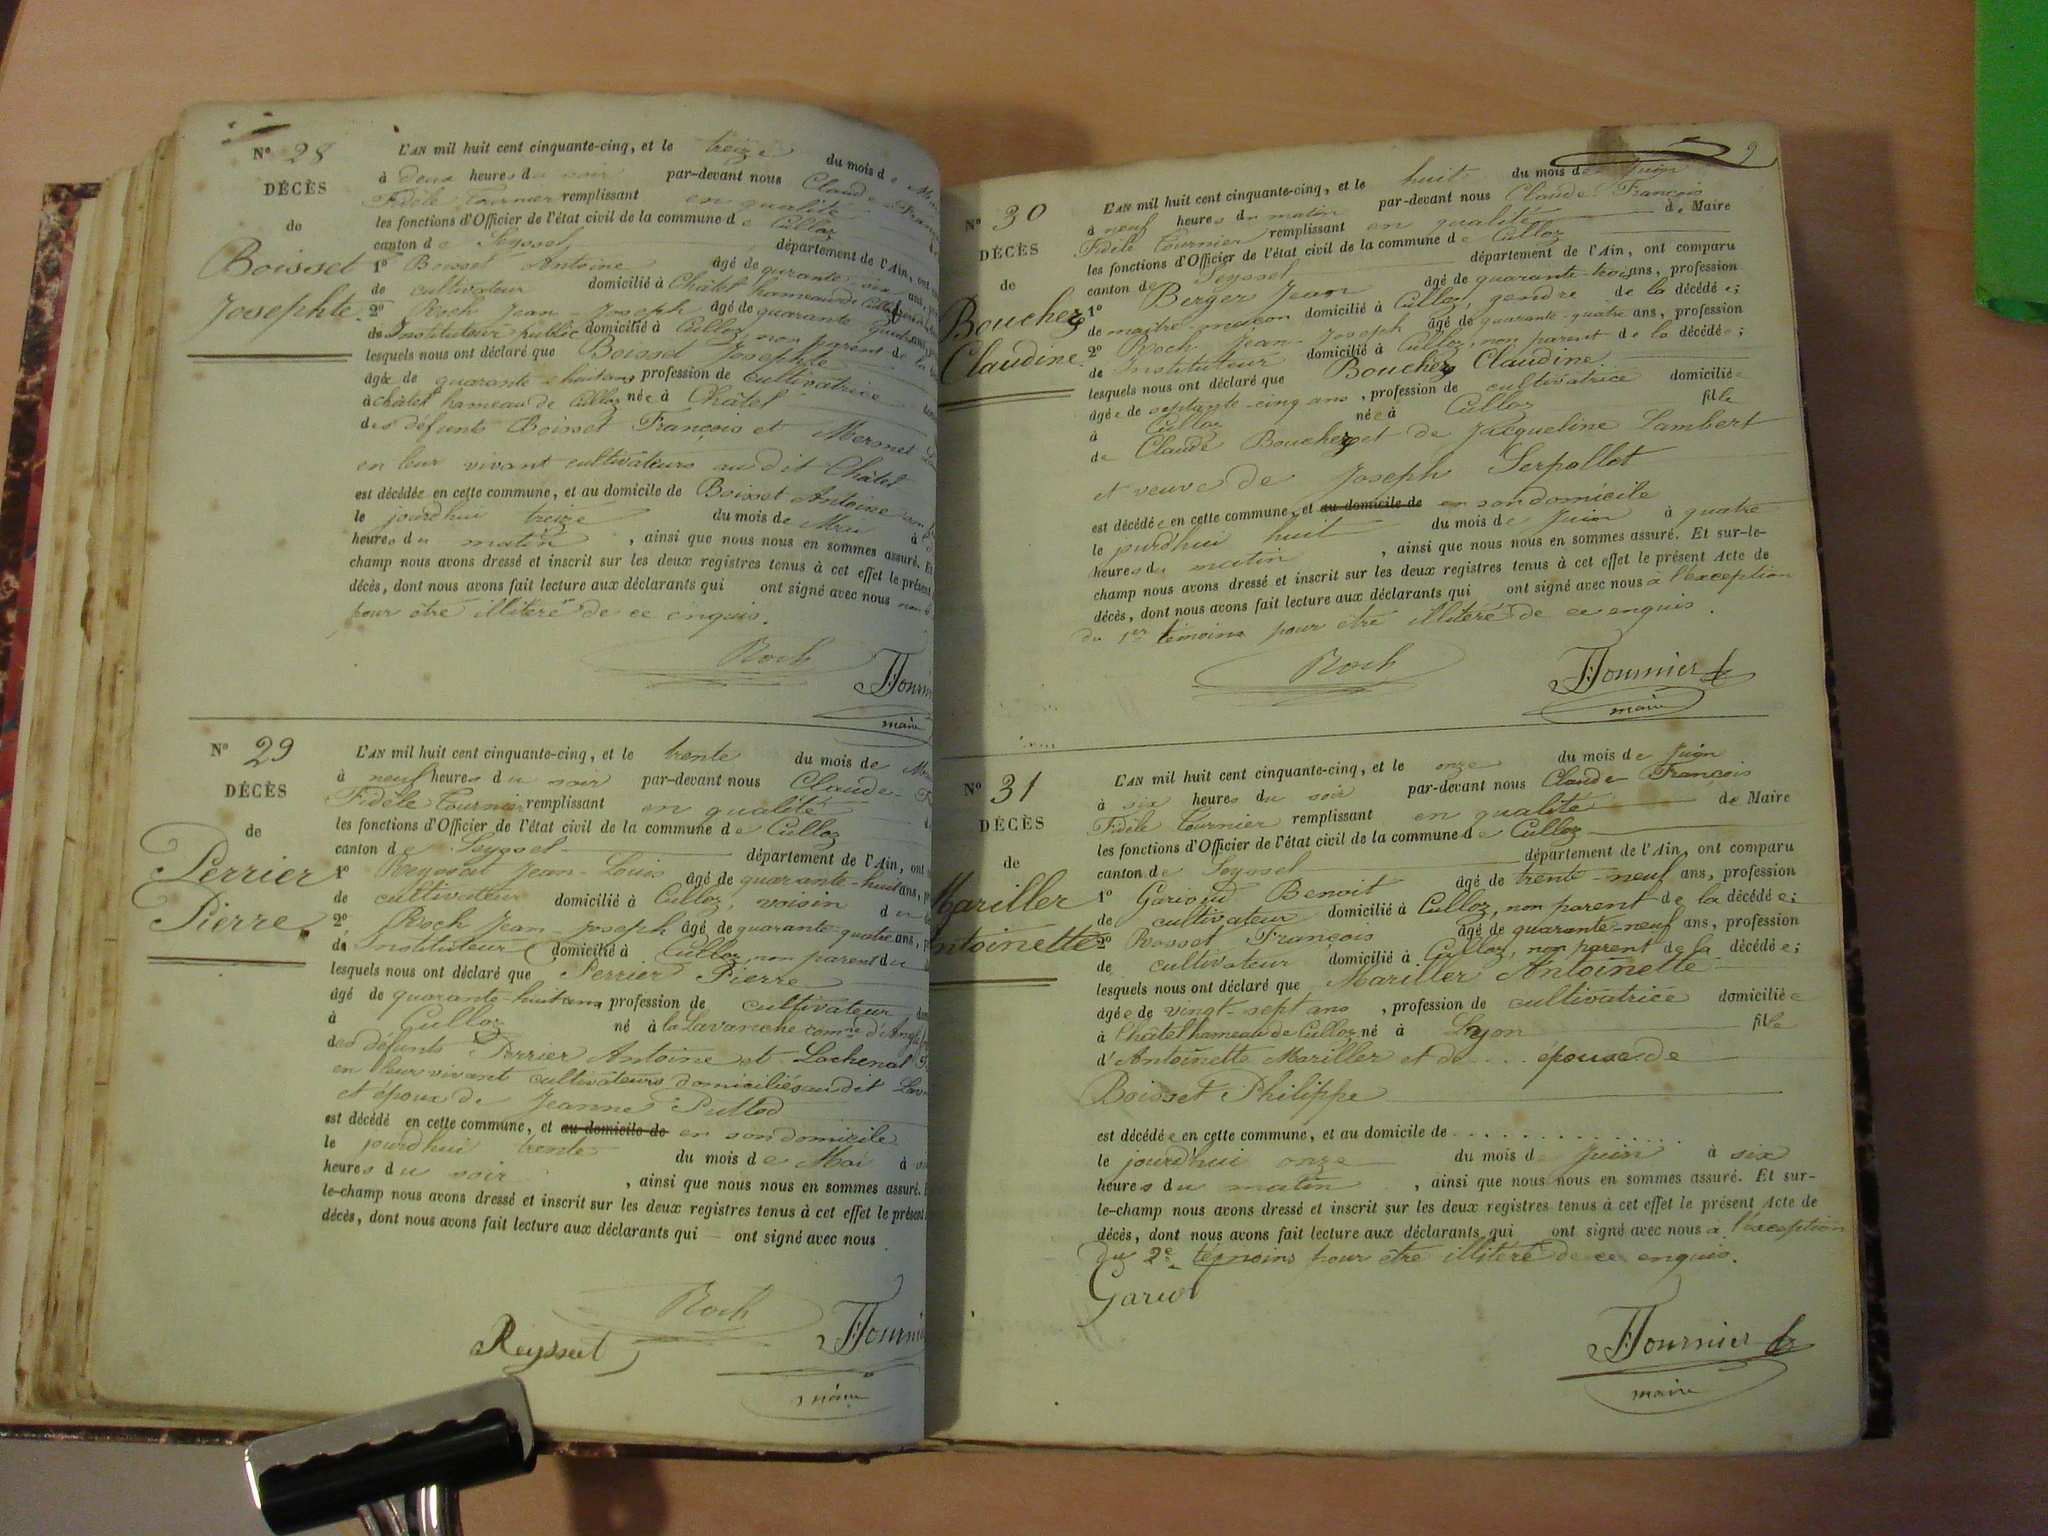 N° 28
DÉCÈS
de
Boisset
Josephte.
L'AN mil huit cent cinquante-cinq, et le treize du mois de
à deux heures du soir par-devant nous Claude
Fidèle Tournier remplissant en qualité
les fonctions d'Officier de l'état civil de la commune de Culloz
canton de Seyssel, département de l'Ain, ont
1° Boisset Antoine âgé de quarante-six ans,
de cultivateur domicilié à Châtel hameau de Culloz
2° Roch Jean-Joseph âgé de quarante quatre ans,
de Instituteur public domicilié à Culloz, non parent de la
lesquels nous ont déclaré que Boisset Josephte
âgée de quarante-huit ans profession de cultivatrice
à Châtel hameau de Culloz née à Châtel
des défunts Boisset François et Mermet
en leur vivant cultivateurs au dit Châtel
est décédée en cette commune, et au domicile de Boisset Antoine son
le jourd'hui treize du mois de Mai à
heures du matin, ainsi que nous nous en sommes assuré. Et
champ nous avons dressé et inscrit sur les deux registres tenus à cet effet le présent
décès, dont nous avons fait lecture aux déclarants qui ont signé avec nous non le
pour être illiteré de ce enquis.
Roch
maire
N° 29
DÉCÈS
de
Perrier
Pierre.
L'AN mil huit cent cinquante-cinq, et le trente du mois de
à neuf heures du soir par-devant nous Claude-
Fidèle Tournier remplissant en qualité
les fonctions d'Officier de l'état civil de la commune de Culloz
canton de Seyssel département de l'Ain, ont
1° Reyssat Jean-Louis âgé de quarante-huit ans,
de cultivateur domicilié à Culloz, voisin du
2° Roch Jean-Joseph âgé de quarante-quatre ans,
de Instituteur domicilié à Culloz, non parent du
lesquels nous ont déclaré que Perrier Pierre
âgé de quarante-huit ans profession de cultivateur
à Culloz né à la Lavanche comne d'
des défunts Perrier Antoine et Lachenal
en leur vivant cultivateurs domiciliés au dit
et époux de Jeanne Pullod
est décédé en cette commune, et au domicile de en son domicile
le jourd'hui trente du mois de Mai à
heures du soir, ainsi que nous nous en sommes assuré.
le-champ nous avons dressé et inscrit sur les deux registres tenus à cet effet le présent
décès, dont nous avons fait lecture aux déclarants qui — ont signé avec nous
Roch
Reyssat
maire
9
N° 30
DÉCÈS
de
Boucherz
Claudine.
L'AN mil huit cent cinquante-cinq, et le huit du mois de Juin
à neuf heures du matin par-devant nous Claude-François
Fidèle Tournier remplissant en qualité de Maire
les fonctions d'Officier de l'état civil de la commune de Culloz
canton de Seyssel département de l'Ain, ont comparu
1° Berger Jean âgé de quarante-trois ans, profession
de maître-maçon domicilié à Culloz, gendre de la décédée;
2° Roch Jean-Joseph âgé de quarante-quatre ans, profession
de Instituteur domicilié à Culloz, non parent de la décédée;
lesquels nous ont déclaré que Boucherz Claudine
âgée de septante-cinq ans, profession de cultivatrice domiciliée
à Culloz née à Culloz fille
de Claude Boucherz et de Jacqueline Lambert
et veuve de Joseph Serpollet
est décédée en cette commune, et au domicile de en son domicile
le jourd'hui huit du mois de Juin à quatre
heures du matin, ainsi que nous nous en sommes assuré. Et sur-le-
champ nous avons dressé et inscrit sur les deux registres tenus à cet effet le présent Acte de
décès, dont nous avons fait lecture aux déclarants qui ont signé avec nous à l'exception
du 1er témoins pour être illiteré de ce enquis.
Roch
Tournier
maire
N° 31
DÉCÈS
de
Mariller
Antoinette
L'AN mil huit cent cinquante-cinq, et le onze du mois de Juin
à six heures du soir par-devant nous Claude-François
Fidèle Tournier remplissant en qualité de Maire
les fonctions d'Officier de l'état civil de la commune de Culloz
canton de Seyssel département de l'Ain, ont comparu
1° Benoit âgé de trente-neuf ans, profession
de cultivateur domicilié à Culloz, non parent de la décédée;
2° Rosset François âgé de quarante-neuf ans, profession
de cultivateur domicilié à Culloz, non parent de la décédée;
lesquels nous ont déclaré que Mariller Antoinette
âgée de vingt-sept ans, profession de cultivatrice domiciliée
à Châtel hameau de Culloz né à Lyon fille
d'Antoinette Mariller et de ... épouse de
Boisset Philippe
est décédée en cette commune, et au domicile de . . . . . . . . . . . . . . .
le jourd'hui onze du mois de Juin à six
heures du matin, ainsi que nous nous en sommes assuré. Et sur-
le-champ nous avons dressé et inscrit sur les deux registres tenus à cet effet le présent Acte de
décès, dont nous avons fait lecture aux déclarants qui ont signé avec nous à l'exception
du 2e témoins pour être illiteré de ce enquis.
Tournier
maire